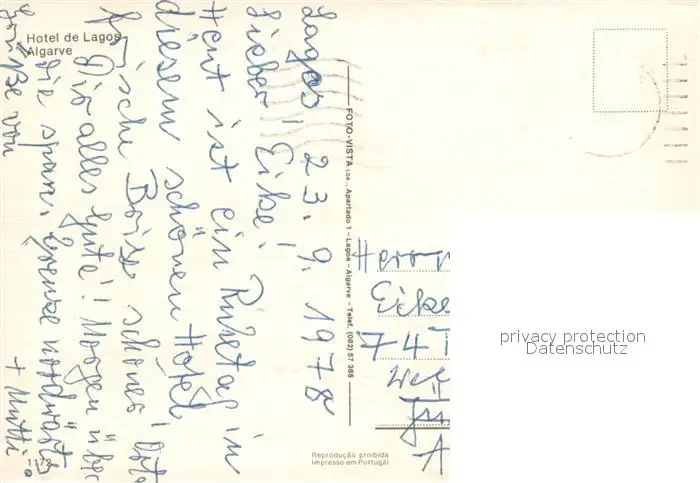 Hotel de Lagos
Algarve
Lagos 23.9.1978
Lieber Eike!
Heut ist ein Ruhetag in
diesem schönen Hotel
sche Börse schones!
Dir alles gute! Morgen über
die span. Grenze nordwärts
Grüße von
+ Mutti.
1173
FOTO-VISTA LDA., Apartado 1 - Lagoa - Algarve - Telef. (082) 57 365
Herrn
Eike
74 T
Reprodução proibida
Impresso em Portugal
privacy protection
Datenschutz